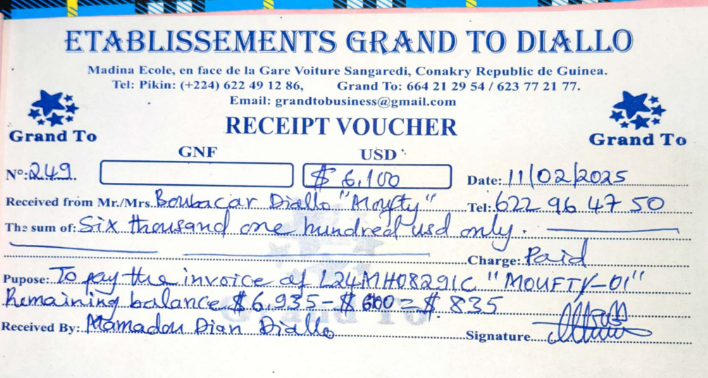 ETABLISSEMENTS GRAND TO DIALLO
Madina Ecole, en face de la Gare Voiture Sangaredi, Conakry Republic de Guinea.
Tel: Pikin: (+224) 622 49 12 86, Grand To: 664 21 29 54 / 623 77 21 77.
Email: grandtobusiness@gmail.com
Grand To
RECEIPT VOUCHER
Grand To
GNF USD
N°: 249. $ 6,100 Date: 11/02/2025
Received from Mr./Mrs. Boubacar Diallo "Moufty" Tel: 622 96 47 50
The sum of: Six thousand one hundred usd only.
Charge: Paid
Pupose: To pay the invoice of L24MH08291C "MOUFTY-01"
Remaining balance $6,935 - $ = $ 835
Received By: Mamadou Dian Diallo Signature
Grand To